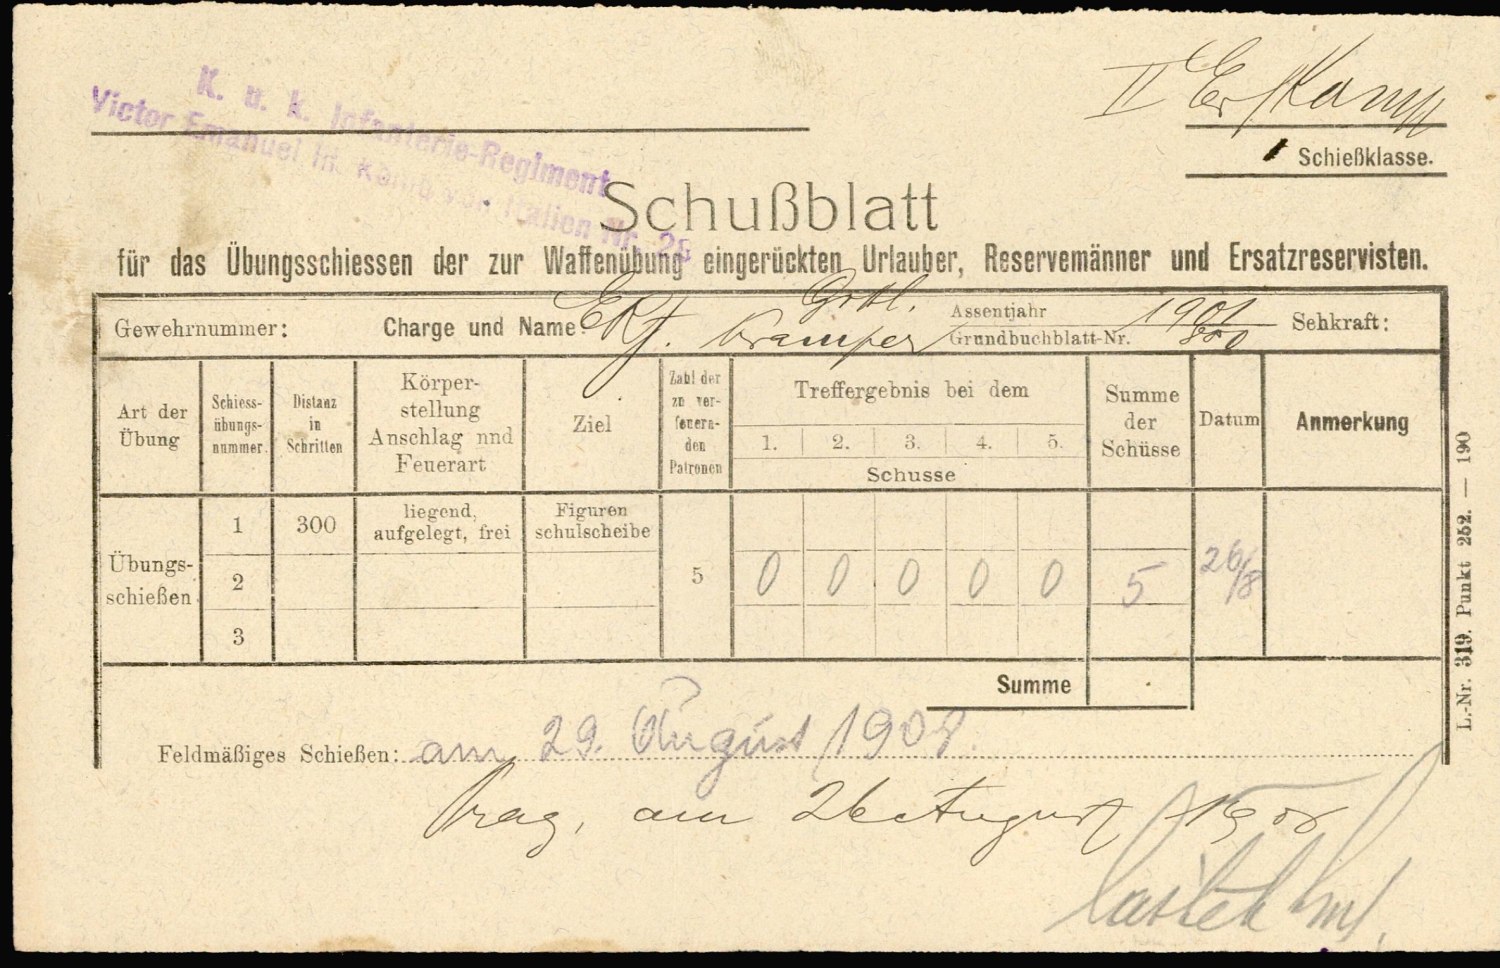 K. u. k. Infanterie-Regiment
Victor Emanuel III. König von Italien Nr. 28
II
Schießklasse.
Schußblatt
für das Übungsschiessen der zur Waffenübung eingerückten Urlauber, Reservemänner und Ersatzreservisten.
Gewehrnummer: Charge und Name: Assentjahr 1901 Sehkraft:
Grundbuchblatt-Nr.
Art der Übung
Schiess-übungs-nummer.
Distanz in Schritten
Körper-stellung Anschlag nnd Feuerart
Ziel
Zahl der zu ver-feuern-den Patronen
Treffergebnis bei dem
1. 2. 3. 4. 5.
Schusse
Summe der Schüsse
Datum
Anmerkung
Übungs-schießen
1 300 liegend, aufgelegt, frei Figuren schulscheibe
2 5 0 0 0 0 0 5 26/8
3
Summe
Feldmäßiges Schießen: am 29. August 1908.
Prag, am 26 August 1908
L.-Nr. 319. Punkt 252. — 190